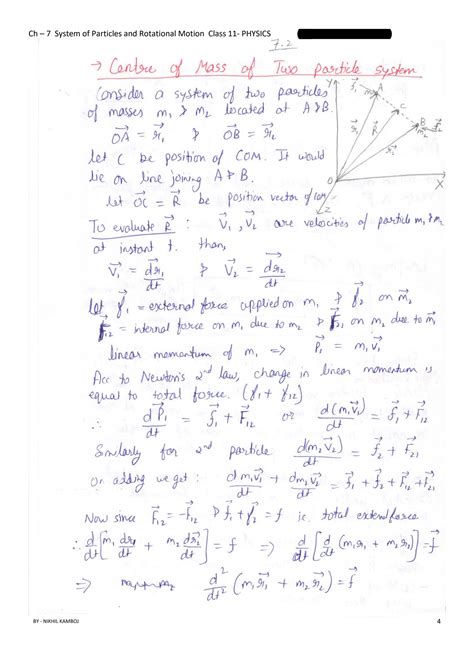 Ch – 7 System of Particles and Rotational Motion Class 11- PHYSICS
7.2
→ Centre of Mass of Two particle system
Consider a system of two particles
of masses m₁ & m₂ located at A & B.
OA⃗ = r⃗₁ & OB⃗ = r⃗₂
let C be position of COM. It would
lie on line joining A & B.
let OC⃗ = R⃗ be position vector of COM
Y
f⃗₁
A
m₁
C
B
f⃗₂
m₂
r⃗₁
R⃗
r⃗₂
O
X
Z
To evaluate R⃗ : V⃗₁, V⃗₂ are velocities of particle m₁ & m₂
at instant t. than,
V⃗₁ = dr⃗₁/dt & V⃗₂ = dr⃗₂/dt
let f⃗₁ = external force applied on m₁ & f⃗₂ on m₂
F⃗₁₂ = internal force on m₁ due to m₂ & F⃗₂₁ on m₂ due to m₁
linear momentum of m₁ => P⃗₁ = m₁v⃗₁
Acc to Newton's 2nd law, change in linear momentum is
equal to total force. (f₁ + f₁₂)
∴ dP⃗₁/dt = f⃗₁ + F⃗₁₂ or d(m₁V⃗₁)/dt = f⃗₁ + F⃗₁₂
Similarly for 2nd particle d(m₂V⃗₂)/dt = f⃗₂ + F⃗₂₁
on adding we get : dm₁v⃗₁/dt + dm₂v⃗₂/dt = f⃗₁ + f⃗₂ + F⃗₁₂ + F⃗₂₁
Now since F⃗₁₂ = -F⃗₂₁ & f⃗₁ + f⃗₂ = f ie. total extern force
∴ d/dt [m₁ dr₁/dt + m₂ dr⃗₂/dt] = f => d/dt [d/dt (m₁r₁ + m₂r₂)] = f
=> d²/dt² (m₁r⃗₁ + m₂r⃗₂) = f⃗
BY - NIKHIL KAMBOJ
4